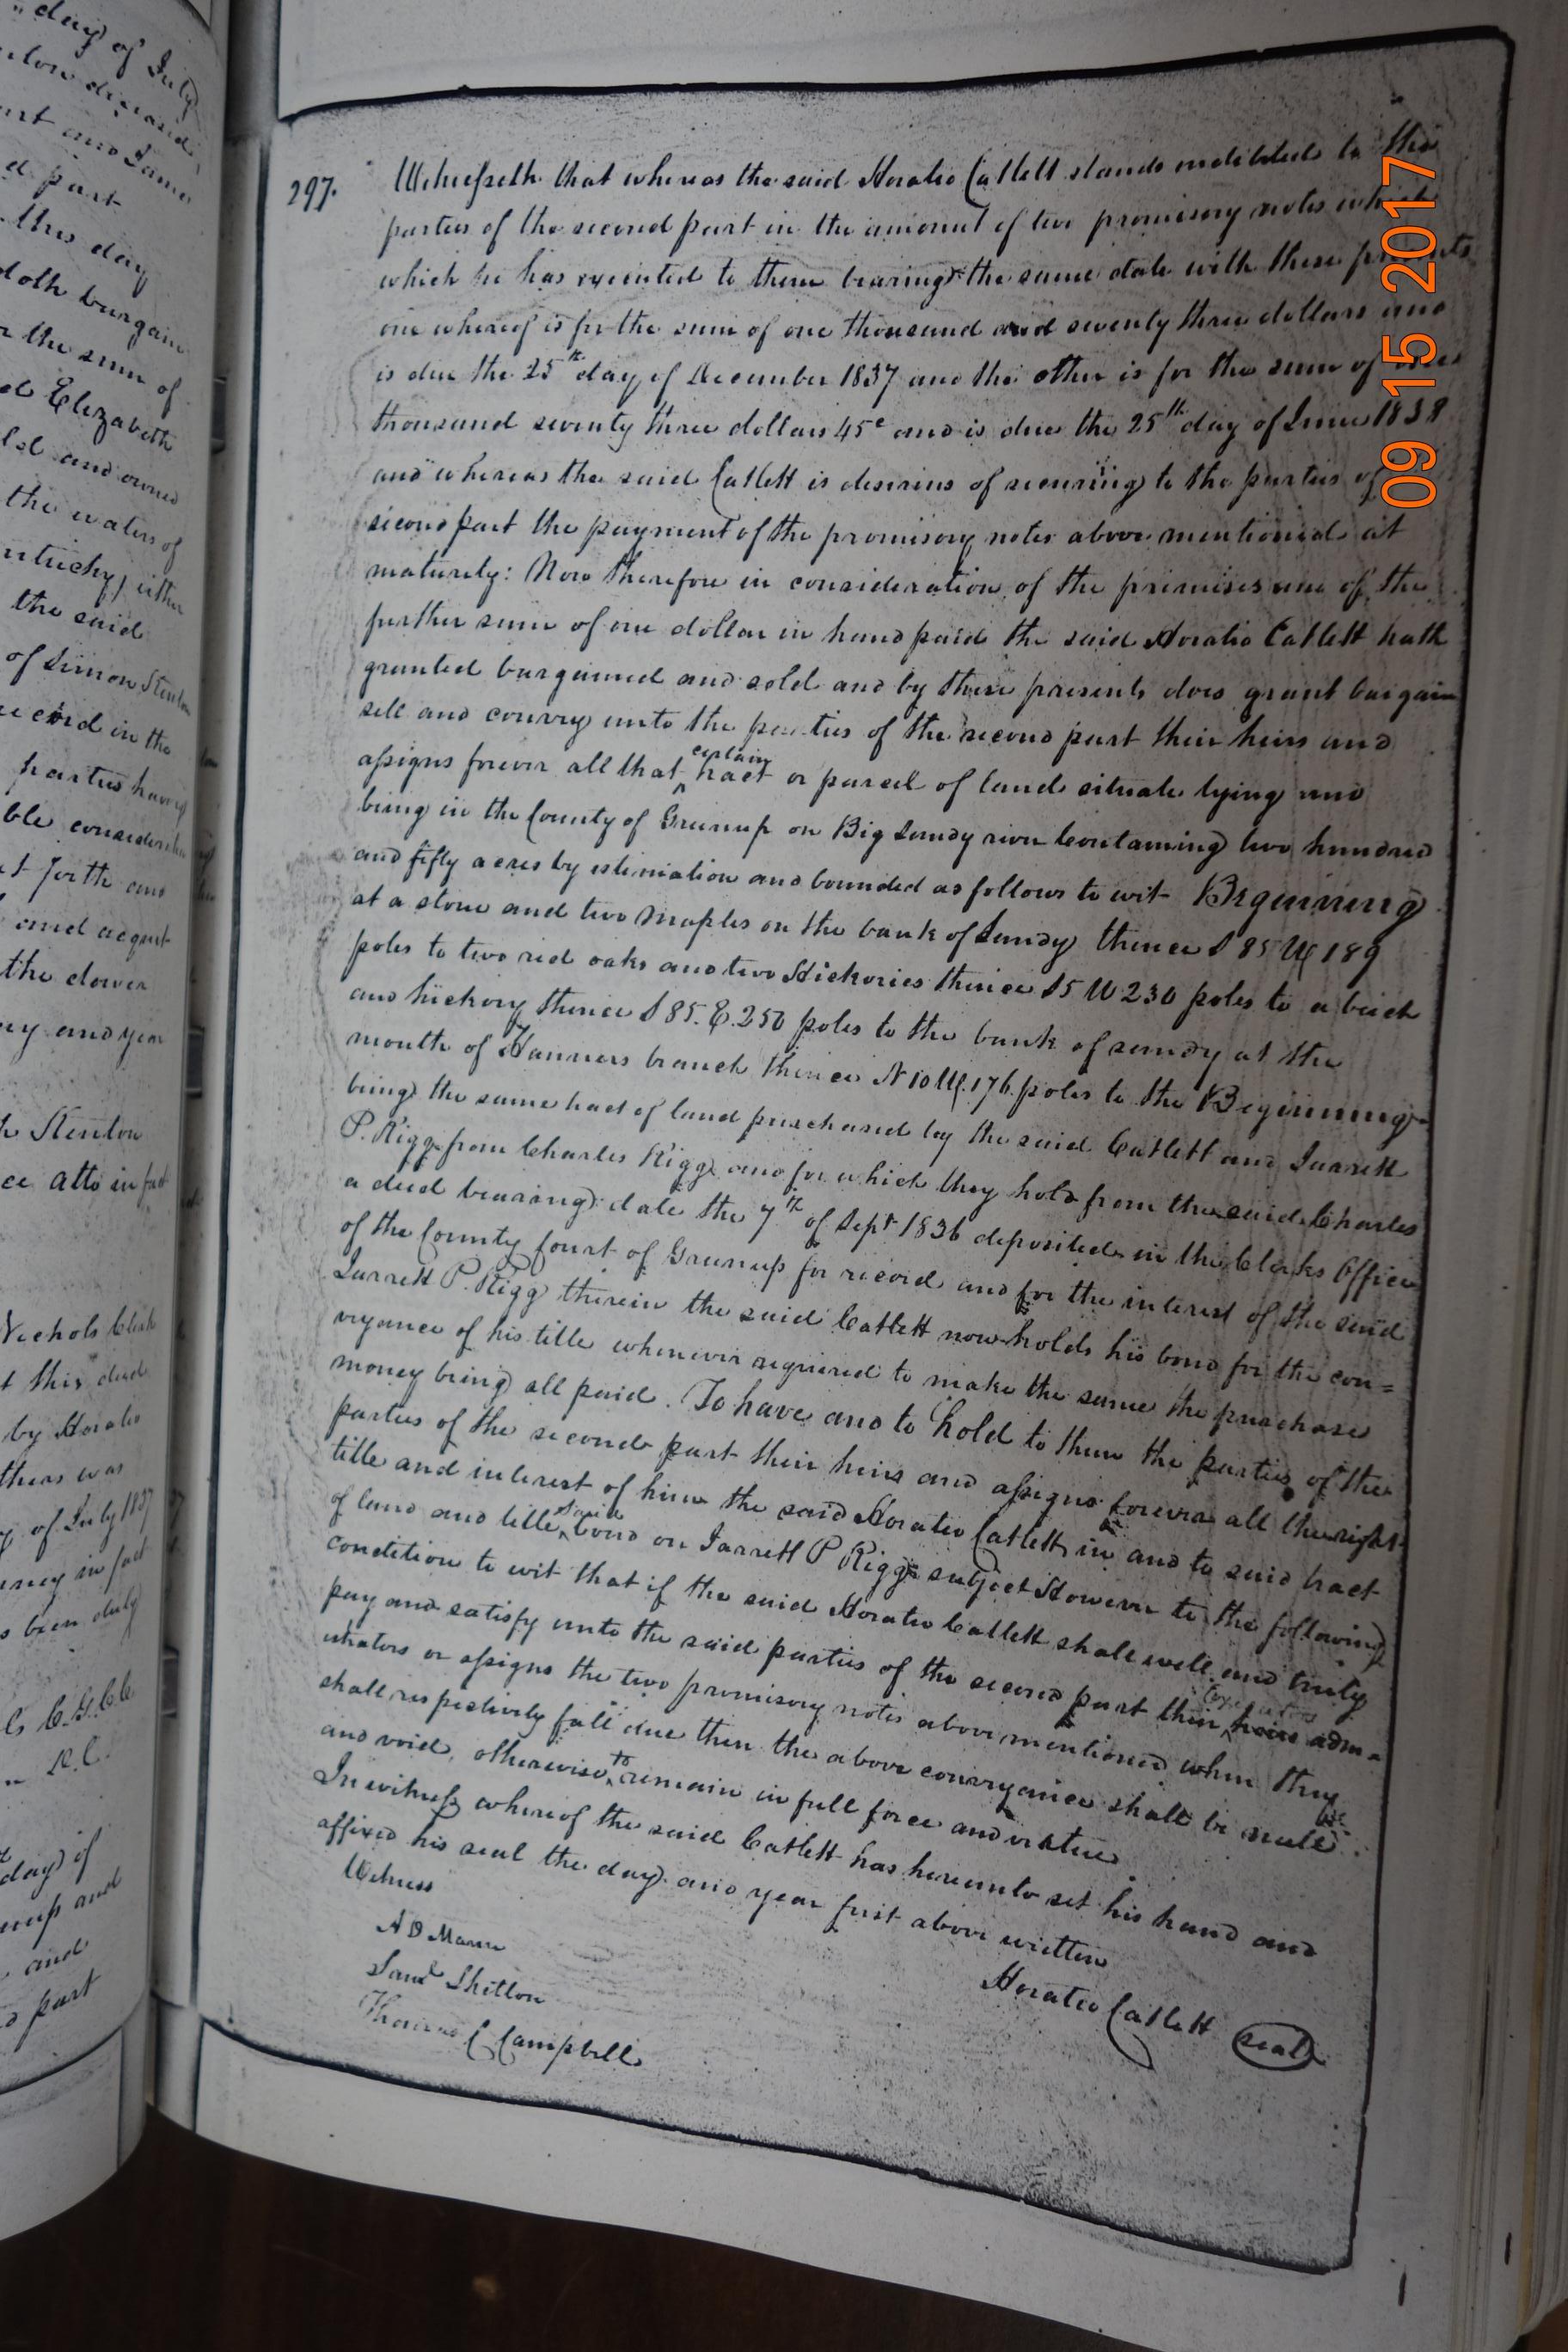 "day of July
below
art and James
d part
this day
doth bargain
the sum of
Elizabeth
and owned
the waters of
either
the said
of Simon
record in the
parties having
ble
forth and
and acquit
the dower
day and year
Stenton
atto in fact
Nichols Clerk
this deed
by Horatio
thers was
of July 1837
in fact
been duly
C.G.C.C.
D.C.
day of
and
part
297. Witnesseth that whereas the said Horatio Catlett stands indebted to the
parties of the second part in the amount of two promisory notes which
which he has executed to them bearing the same date with these presents
one whereof is for the sum of one thousand and seventy three dollars and
is due the 25th day of December 1837 and the other is for the sum of one
thousand seventy three dollars 45c and is due the 25th day of June 1838
and whereas the said Catlett is desirius of securing to the parties of
second part the payment of the promisory notes above mentioned at
maturely: Now therefore in consideration of the primises and of the
further sum of one dollar in hand paid the said Horatio Catlett hath
granted bargained and sold and by these presents does grant bargain
sell and convey unto the parties of the second part their heirs and
assigns forever all that certain tract or parcel of land situate lying and
being in the County of Greenup on Big Sandy river Containing two hundred
and fifty acres by estimation and bounded as follows to wit Beginning
at a stone and two Maples on the bank of Sandy thence S 85 W 189
poles to two red oaks and two Hickories thence S 5 W 230 poles to a beech
and hickory thence S 85. E. 250 poles to the bank of sandy at the
mouth of branch thence N 10 W. 176 poles to the Beginning
being the same tract of land purchased by the said Catlett and Jarrett
P. Rigg from Charles Rigg and for which they hold from the said Charles
a deed bearing date the 7th of Sept 1836 deposited in the Clerks Office
of the County Court of Greenup for record and for the interest of the said
Jarrett P. Rigg therein the said Catlett now holds his bond for the con=
veyance of his title whenever requiered to make the same the purchase
money being all paid. To have and to hold to them the parties of the
parties of the second part their heirs and assigns forever all the right
title and interest of him the said Horatio Catlett in and to said tract
of land and title said bond on Jarrett P Rigg subject However to the following
condition to wit that if the said Horatio Catlett shall well and truly
pay and satisfy unto the said parties of the second part their heirs adm=
istrators or assigns the two promisory notes above mentioned when they
shall respectively fall due then the above conveyance shall be null
and void, otherwise to remain in full force and virtue
In witness whereof the said Catlett has hereunto set his hand and
affixed his seal the day and year first above written
Witness
Horatio Catlett seal
A D Mann
Saml Shelton
Thomas C Campbell
09 15 2017